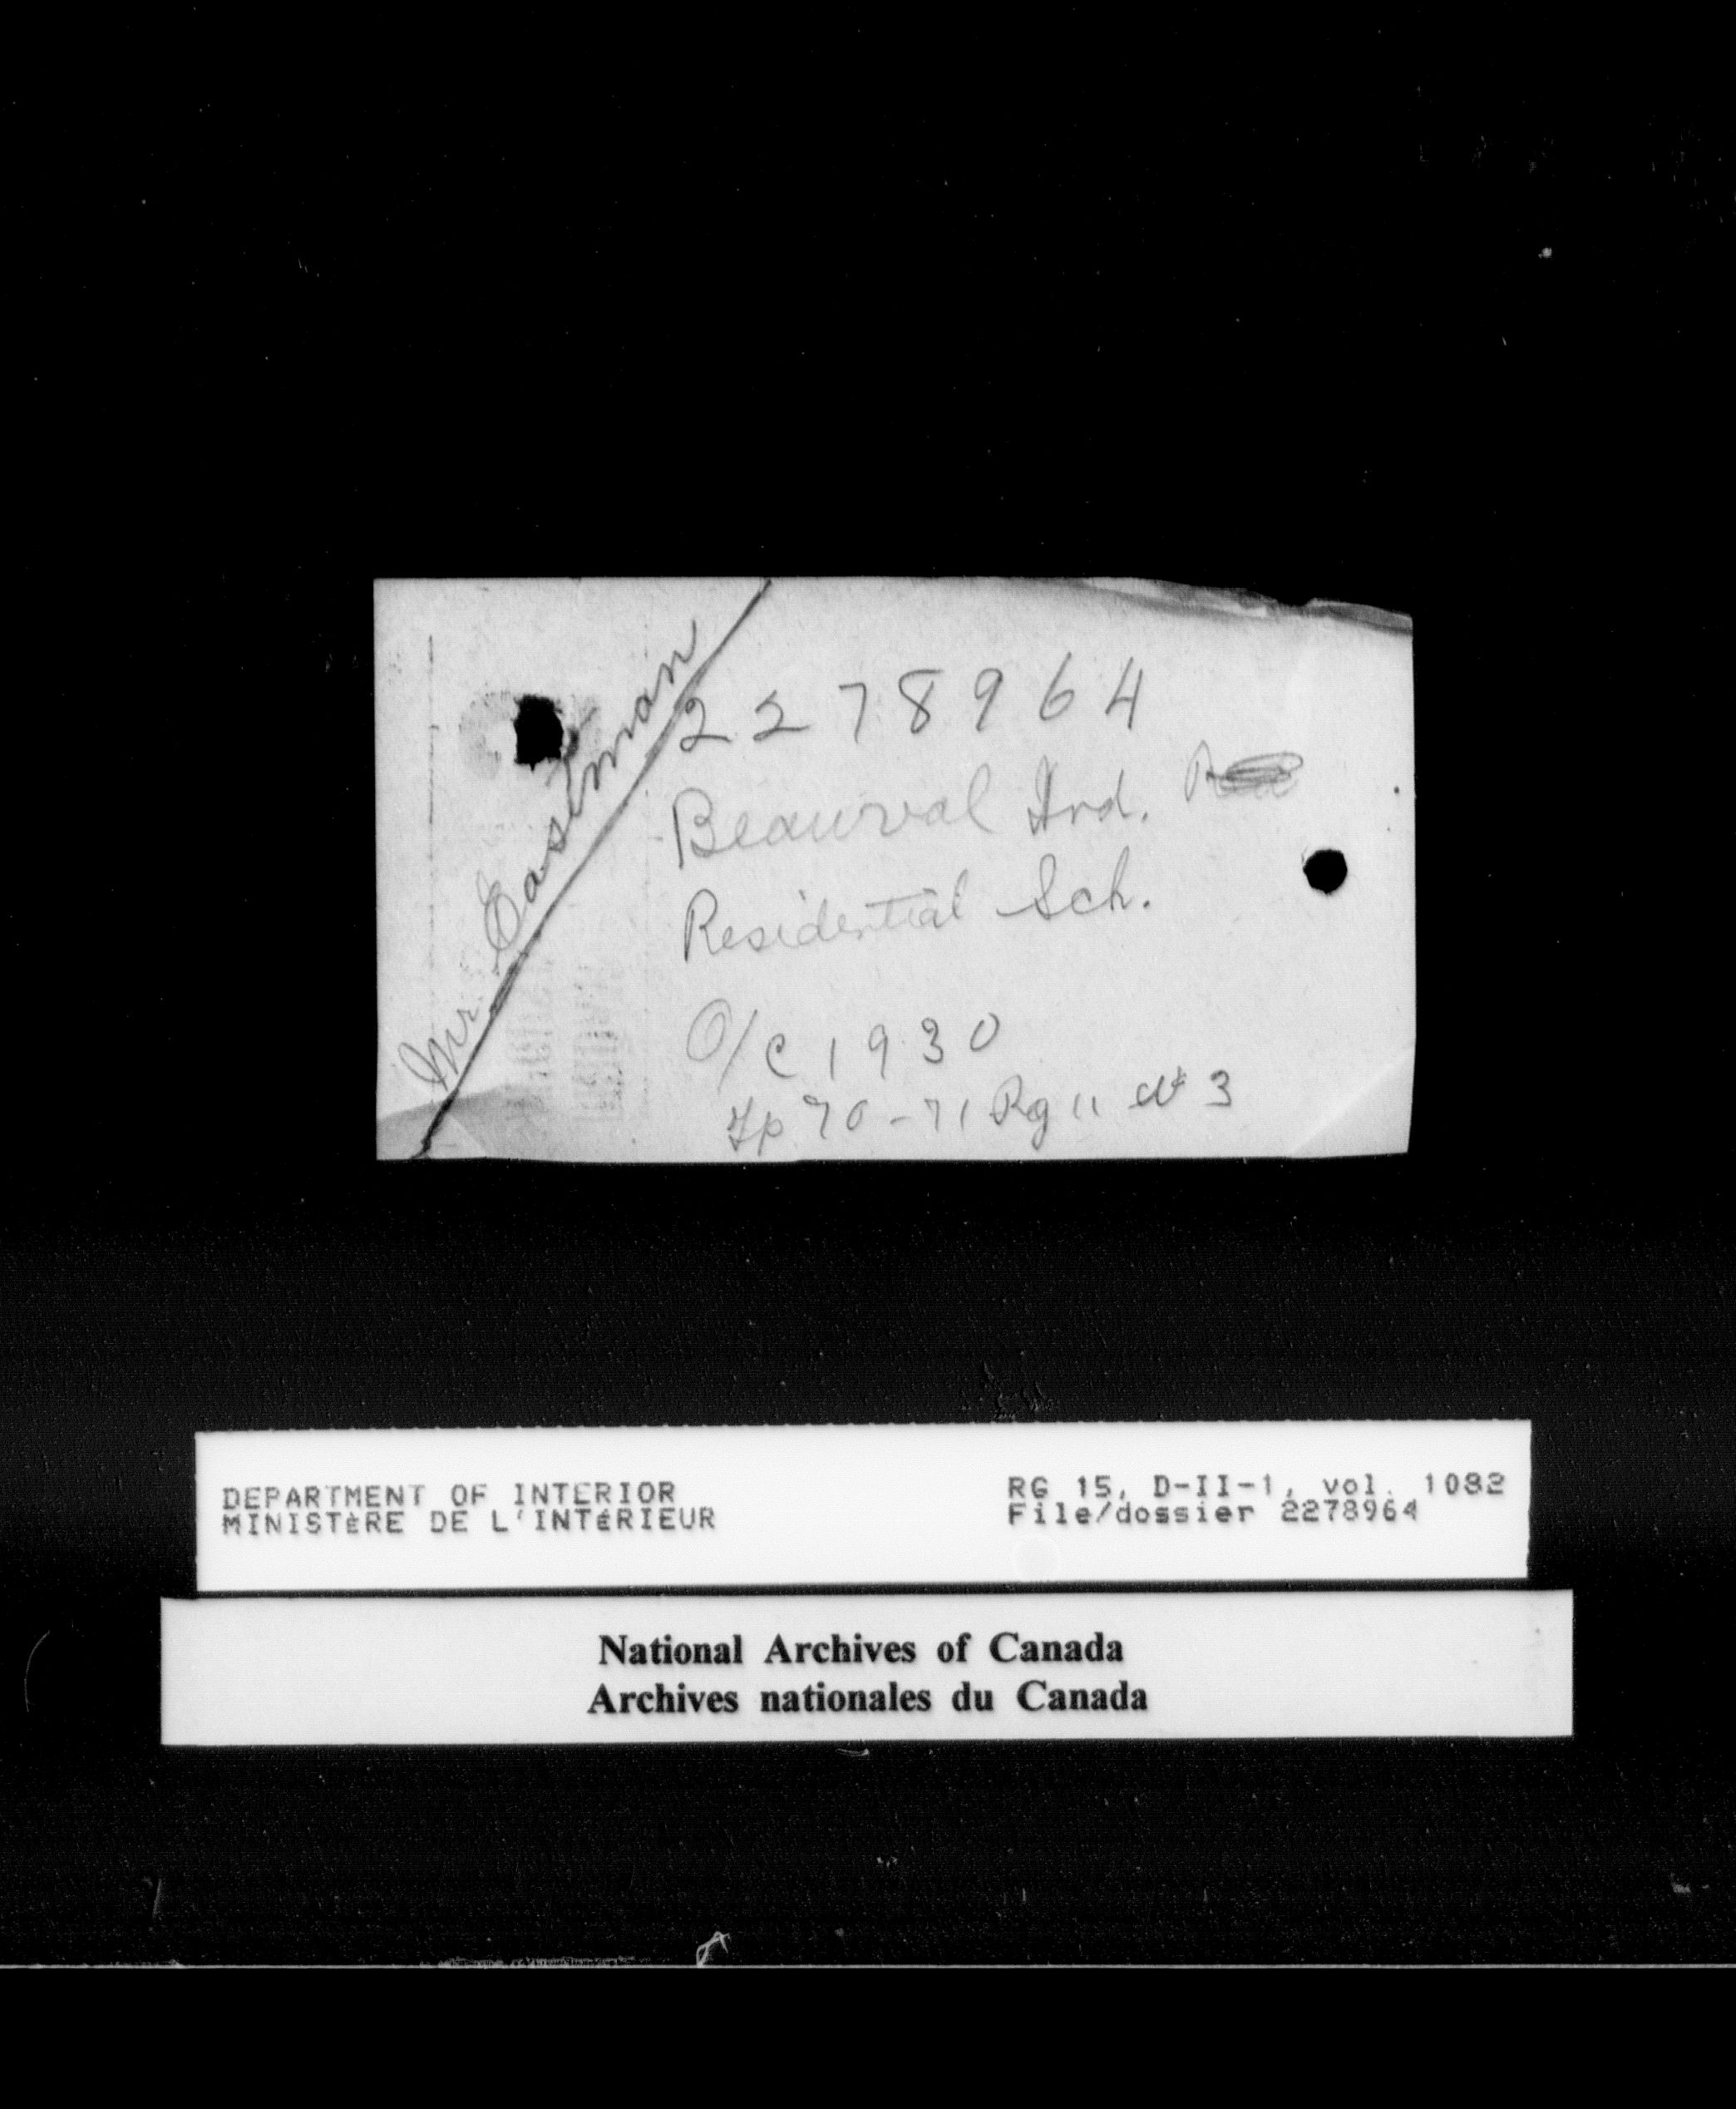 Mr. Eastman
2278964
Beauval Ind.
Residential Sch.
O/C 1930
Tp 70-71 Rg 11 W 3
DEPARTMENT OF INTERIOR
MINISTÈRE DE L'INTÉRIEUR
RG 15, D-II-1, vol. 1082
File/dossier 2278964
National Archives of Canada
Archives nationales du Canada